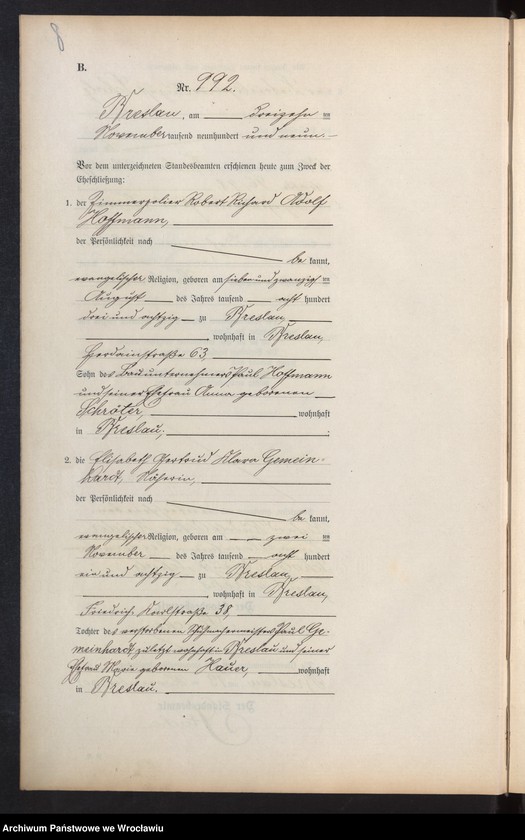 8
B.
Nr. 992.
Breslau, am dreizehn
November tausend neunhundert und neun.
Vor dem unterzeichneten Standesbeamten erschienen heute zum Zweck der
Eheschließung:
1. der Zimmerpolier Robert Richard Adolf
Hoffmann,
der Persönlichkeit nach
be kannt,
evangelischer Religion, geboren am siebenundzwanzigs
August des Jahres tausend acht hundert
drei und achtzig zu Breslau,
, wohnhaft in Breslau,
Herdainstraße 63
Sohn des Bauunternehmers Paul Hoffmann
und seiner Ehefrau Anna geborenen
Schröter, wohnhaft
in Breslau;
2. die Elisabeth Gertrud Klara Gemein-
hardt, Näherin,
der Persönlichkeit nach
be kannt,
evangelischer Religion, geboren am zwei
November des Jahres tausend acht hundert
ein und achtzig zu Breslau,
, wohnhaft in Breslau,
Friedrich Karlstraße 38,
Tochter des verstorbenen Schuhmachermeisters Paul Ge-
meinhardt, zuletzt wohnhaft in Breslau und seiner
Ehefrau Marie geborenen Hauer, wohnhaft
in Breslau.
Archiwum Państwowe we Wrocławiu